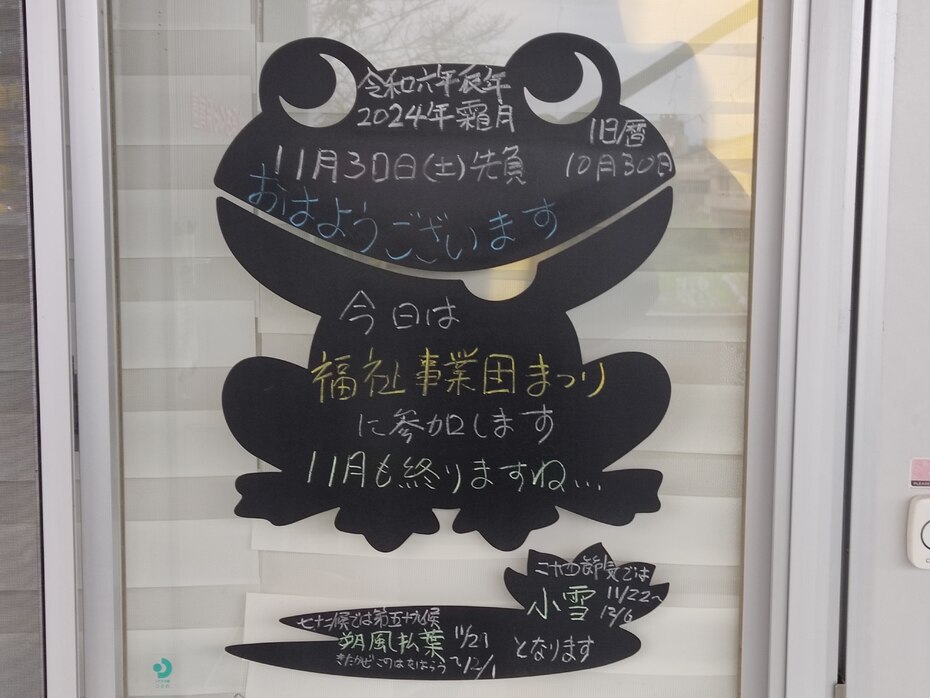 令和六年辰年
2024年霜月
旧暦
10月30日
11月30日(土)先負
おはようございます
今日は
福祉事業団まつり
に参加します
11月も終りますね...
二十四節気では
小雪 11/22~
12/6
七十二候では第五十九候
朔風払葉 11/27
きたかぜこのはをはらう ~12/1
となります